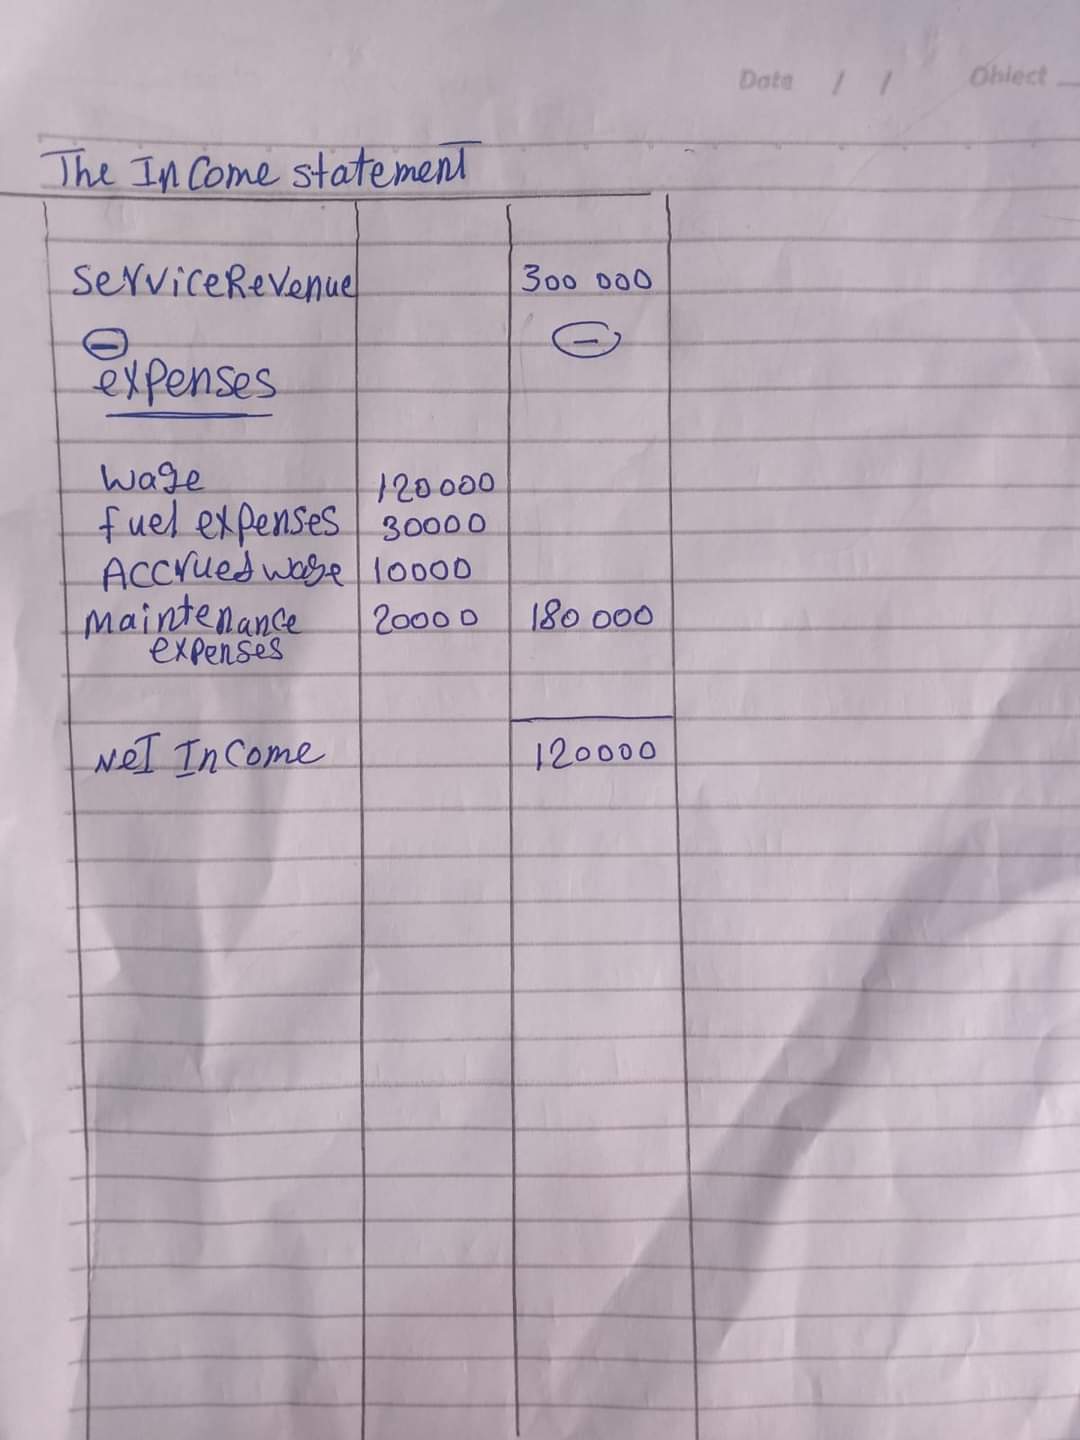 Date / / Object
The InCome statement
serviceRevenue 300 000
- -
expenses
wage 120000
fuel expenses 30000
Accrued wage 10000
maintenance 20000 180 000
expenses
NeT InCome 120000